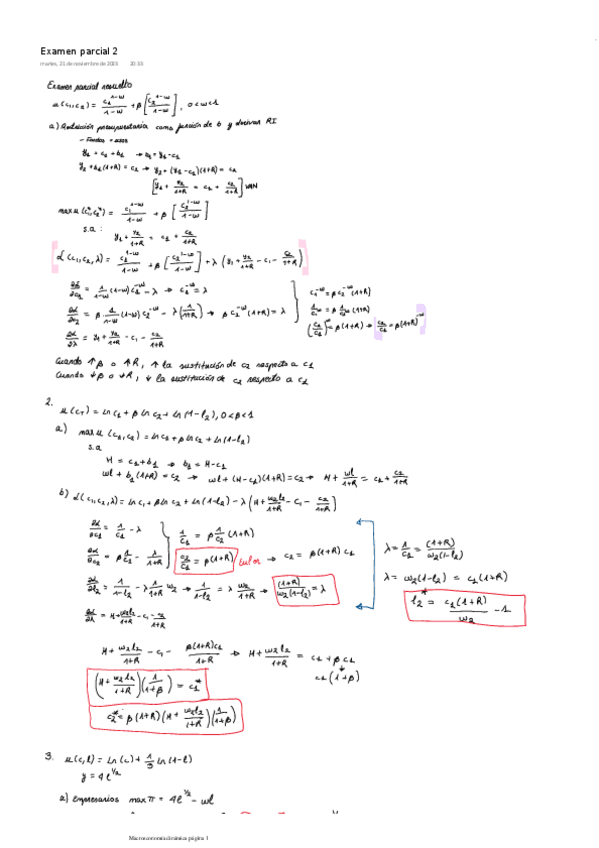 Examen parcial 2
martes, 21 de noviembre de 2023 20:53
Examen parcial resuelto
u(c₁,c₂) = c₁^(1-w)/(1-w) + β[c₂^(1-w)/(1-w)], 0<w<1
a) Restricción presupuestaria como función de b y derivar RI
- Fuentes = usos
y₁ = c₁ + b₁ → b₁ = y₁ - c₁
y₂ + b₁(1+R) = c₂ → y₂ + (y₁ - c₁)(1+R) = c₂
[y₁ + y₂/(1+R) = c₁ + c₂/(1+R)] VAN
max u(c₁*,c₂*) = c₁^(1-w)/(1-w) + β[c₂^(1-w)/(1-w)]
s.a :
y₁ + y₂/(1+R) = c₁ + c₂/(1+R)
L(c₁,c₂,λ) = c₁^(1-w)/(1-w) + β[c₂^(1-w)/(1-w)] + λ(y₁ + y₂/(1+R) - c₁ - c₂/(1+R))
∂L/∂c₁ = 1/(1-w) (1-w)c₁^-w - λ → c₁^-w = λ
∂L/∂c₂ = β 1/(1-w) (1-w)c₂^-w - λ(1/(1+R)) → βc₂^-w(1+R) = λ
∂L/∂λ = y₁ + y₂/(1+R) - c₁ - c₂/(1+R)
c₁^-w = βc₂^-w(1+R)
1/c₁^w = β 1/c₂^w (1+R)
(c₂/c₁)^w = β(1+R) → c₂/c₁ = β(1+R)^-w
Cuando ↑β o ↑R, ↑ la sustitución de c₂ respecto a c₁
Cuando ↓β o ↓R, ↓ la sustitución de c₂ respecto a c₁
2.
u(c₁) = ln c₁ + β ln c₂ + ln(1-l₂), 0<β<1
a) max u(c₁,c₂) = ln c₁ + β ln c₂ + ln(1-l₂)
s.a
H = c₁ + b₁ → b₁ = H - c₁
wl + b₁(1+R) = c₂ → wl + (H-c₁)(1+R) = c₂ → H + wl/(1+R) = c₁ + c₂/(1+R)
b) L(c₁,c₂,λ) = ln c₁ + β ln c₂ + ln(1-l₂) - λ(H + w₂l₂/(1+R) - c₁ - c₂/(1+R))
∂L/∂c₁ = 1/c₁ - λ
∂L/∂c₂ = β 1/c₂ - λ/(1+R)
1/c₁ = β 1/c₂ (1+R)
c₂/c₁ = β(1+R) Euler → c₂ = β(1+R)c₁
∂L/∂l₂ = 1/(1-l₂) - λ 1/(1+R) w₂ → 1/(1-l₂) = λ w₂/(1+R) → (1+R)/(w₂(1-l₂)) = λ
∂L/∂λ = H + w₂l₂/(1+R) - c₁ - c₂/(1+R)
λ = 1/c₁ = (1+R)/(w₂(1-l₂))
λ = w₂(1-l₂) = c₁(1+R)
l₂* = c₁(1+R)/w₂ - 1
H + w₂l₂/(1+R) - c₁ - β(1+R)c₁/(1+R) → H + w₂l₂/(1+R) = c₁ + βc₁
c₁(1+β)
(H + w₂l₂/(1+R))(1/(1+β)) = c₁*
c₂* = β(1+R)(H + w₂l₂/(1+R))(1/(1+β))
3. u(c,l) = ln(c) + 1/3 ln(1-l)
y = 4l^(1/2)
a) Empresarios max π = 4l^(1/2) - wl
Macroeconomía dinámica página 1